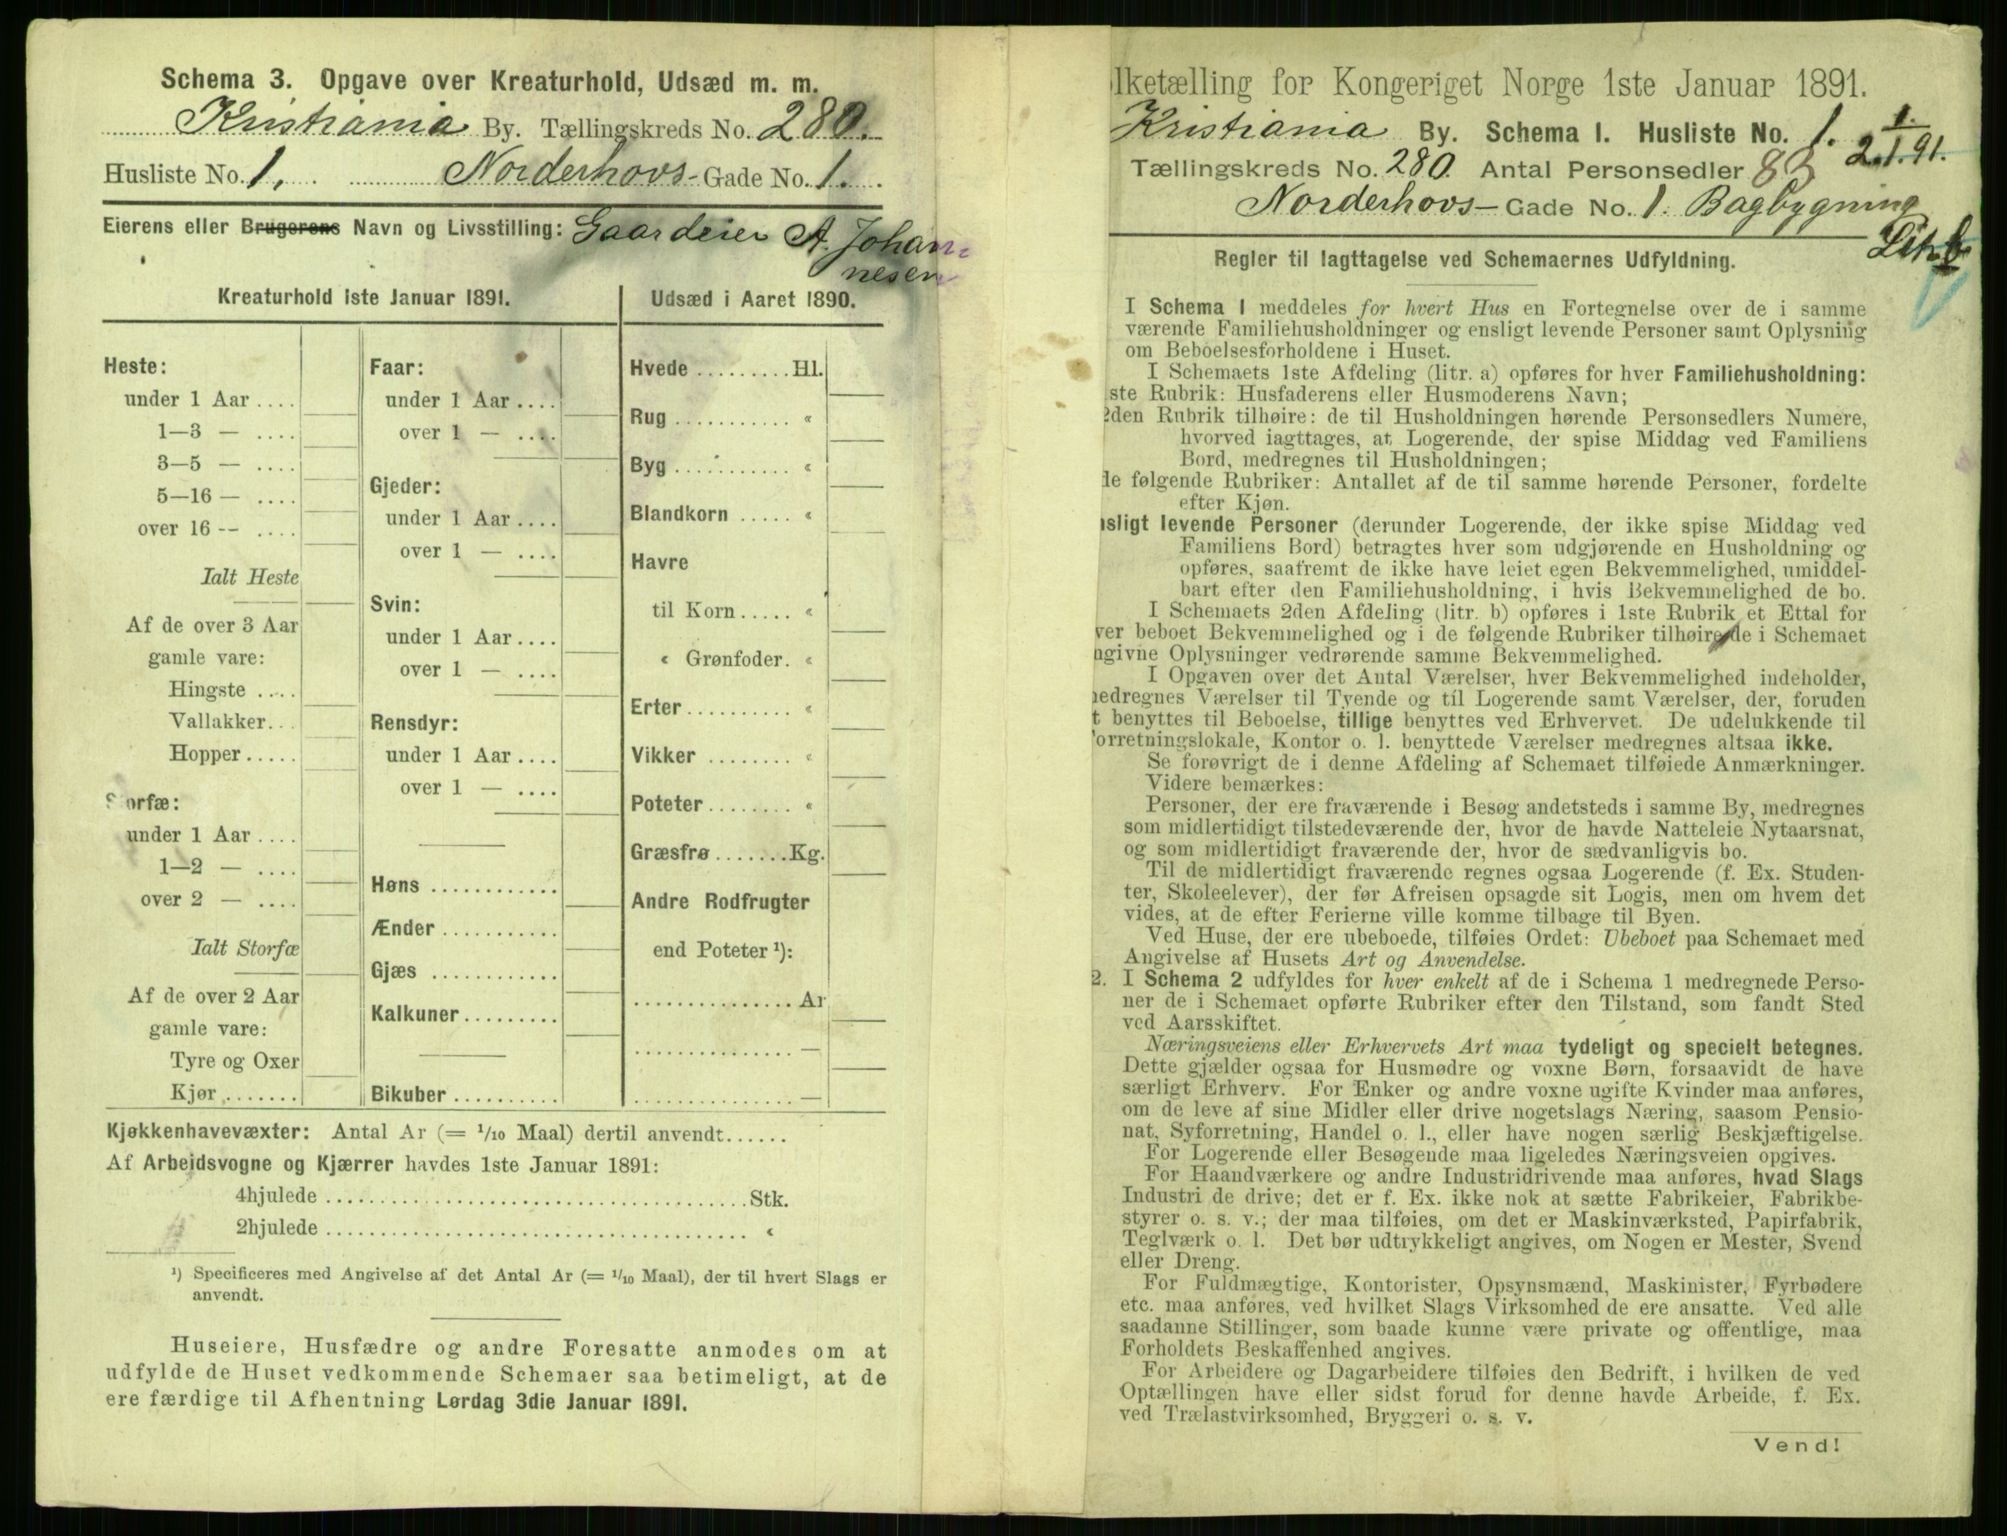 Schema 3. Opgave over Kreaturhold, Udsæd m. m.
Kristiania By. Tællingskreds No. 280.
Husliste No. 1. Norderhovs- Gade No. 1.
Eierens eller Brugerens Navn og Livsstilling: Gaardeier A. Johan-
nesen
Kreaturhold 1ste Januar 1891.
Heste:
under 1 Aar ....
1—3 — ....
3—5 — ....
5—16 — ....
over 16 -- ....
Ialt Heste
Af de over 3 Aar
gamle vare:
Hingste ....
Vallakker...
Hopper.....
Storfæ:
under 1 Aar ....
1—2 — ....
over 2 — ....
Ialt Storfæ
Af de over 2 Aar
gamle vare:
Tyre og Oxer
Kjør.......
Faar:
under 1 Aar ....
over 1 — ....
Gjeder:
under 1 Aar ....
over 1 — ....
Svin:
under 1 Aar ....
over 1 — ....
Rensdyr:
under 1 Aar ....
over 1 — ....
Høns ............
Ænder ...........
Gjæs ............
Kalkuner.........
Bikuber ..........
Udsæd i Aaret 1890.
Hvede .........Hl.
Rug ........... «
Byg ........... «
Blandkorn ..... «
Havre
til Korn ..... «
« Grønfoder. «
Erter.......... «
Vikker ........ «
Poteter........ «
Græsfrø.......Kg.
Andre Rodfrugter
end Poteter ¹):
...............Ar
............... —
............... —
Kjøkkenhavevæxter: Antal Ar (= 1/10 Maal) dertil anvendt......
Af Arbeidsvogne og Kjærrer havdes 1ste Januar 1891:
4hjulede ........................................Stk.
2hjulede ........................................ «
¹) Specificeres med Angivelse af det Antal Ar (= 1/10 Maal), der til hvert Slags er
anvendt.
Huseiere, Husfædre og andre Foresatte anmodes om at
udfylde de Huset vedkommende Schemaer saa betimeligt, at de
ere færdige til Afhentning Lørdag 3die Januar 1891.
lketælling for Kongeriget Norge 1ste Januar 1891.
Kristiania By. Schema I. Husliste No. 1. 1.
2.1.91.
Tællingskreds No. 280 Antal Personsedler 83
Norderhovs- Gade No. 1. Bagbygning
Lit. b
Regler til Iagttagelse ved Schemaernes Udfyldning.
I Schema I meddeles for hvert Hus en Fortegnelse over de i samme
værende Familiehusholdninger og ensligt levende Personer samt Oplysning
om Beboelsesforholdene i Huset.
I Schemaets 1ste Afdeling (litr. a) opføres for hver Familiehusholdning:
ste Rubrik: Husfaderens eller Husmoderens Navn;
2den Rubrik tilhøire: de til Husholdningen hørende Personsedlers Numere,
hvorved iagttages, at Logerende, der spise Middag ved Familiens
Bord, medregnes til Husholdningen;
de følgende Rubriker: Antallet af de til samme hørende Personer, fordelte
efter Kjøn.
nsligt levende Personer (derunder Logerende, der ikke spise Middag ved
Familiens Bord) betragtes hver som udgjørende en Husholdning og
opføres, saafremt de ikke have leiet egen Bekvemmelighed, umiddel-
bart efter den Familiehusholdning, i hvis Bekvemmelighed de bo.
I Schemaets 2den Afdeling (litr. b) opføres i 1ste Rubrik et Ettal for
ver beboet Bekvemmelighed og i de følgende Rubriker tilhøire de i Schemaet
ngivne Oplysninger vedrørende samme Bekvemmelighed.
I Opgaven over det Antal Værelser, hver Bekvemmelighed indeholder,
nedregnes Værelser til Tyende og til Logerende samt Værelser, der, foruden
t benyttes til Beboelse, tillige benyttes ved Erhvervet. De udelukkende til
orretningslokale, Kontor o. l. benyttede Værelser medregnes altsaa ikke.
Se forøvrigt de i denne Afdeling af Schemaet tilføiede Anmærkninger.
Videre bemærkes:
Personer, der ere fraværende i Besøg andetsteds i samme By, medregnes
som midlertidigt tilstedeværende der, hvor de havde Natteleie Nytaarsnat,
og som midlertidigt fraværende der, hvor de sædvanligvis bo.
Til de midlertidigt fraværende regnes ogsaa Logerende (f. Ex. Studen-
ter, Skoleelever), der før Afreisen opsagde sit Logis, men om hvem det
vides, at de efter Ferierne ville komme tilbage til Byen.
Ved Huse, der ere ubeboede, tilføies Ordet: Ubeboet paa Schemaet med
Angivelse af Husets Art og Anvendelse.
2. I Schema 2 udfyldes for hver enkelt af de i Schema 1 medregnede Perso-
ner de i Schemaet opførte Rubriker efter den Tilstand, som fandt Sted
ved Aarsskiftet.
Næringsveiens eller Erhvervets Art maa tydeligt og specielt betegnes.
Dette gjælder ogsaa for Husmødre og voxne Børn, forsaavidt de have
særligt Erhverv. For Enker og andre voxne ugifte Kvinder maa anføres,
om de leve af sine Midler eller drive nogetslags Næring, saasom Pensio-
nat, Syforretning, Handel o. l., eller have nogen særlig Beskjæftigelse.
For Logerende eller Besøgende maa ligeledes Næringsveien opgives.
For Haandværkere og andre Industridrivende maa anføres, hvad Slags
Industri de drive; det er f. Ex. ikke nok at sætte Fabrikeier, Fabrikbe-
styrer o. s. v.; der maa tilføies, om det er Maskinværksted, Papirfabrik,
Teglværk o. l. Det bør udtrykkeligt angives, om Nogen er Mester, Svend
eller Dreng.
For Fuldmægtige, Kontorister, Opsynsmænd, Maskinister, Fyrbødere
etc. maa anføres, ved hvilket Slags Virksomhed de ere ansatte. Ved alle
saadanne Stillinger, som baade kunne være private og offentlige, maa
Forholdets Beskaffenhed angives.
For Arbeidere og Dagarbeidere tilføies den Bedrift, i hvilken de ved
Optællingen have eller sidst forud for denne havde Arbeide, f. Ex.
ved Trælastvirksomhed, Bryggeri o. s. v.
Vend!